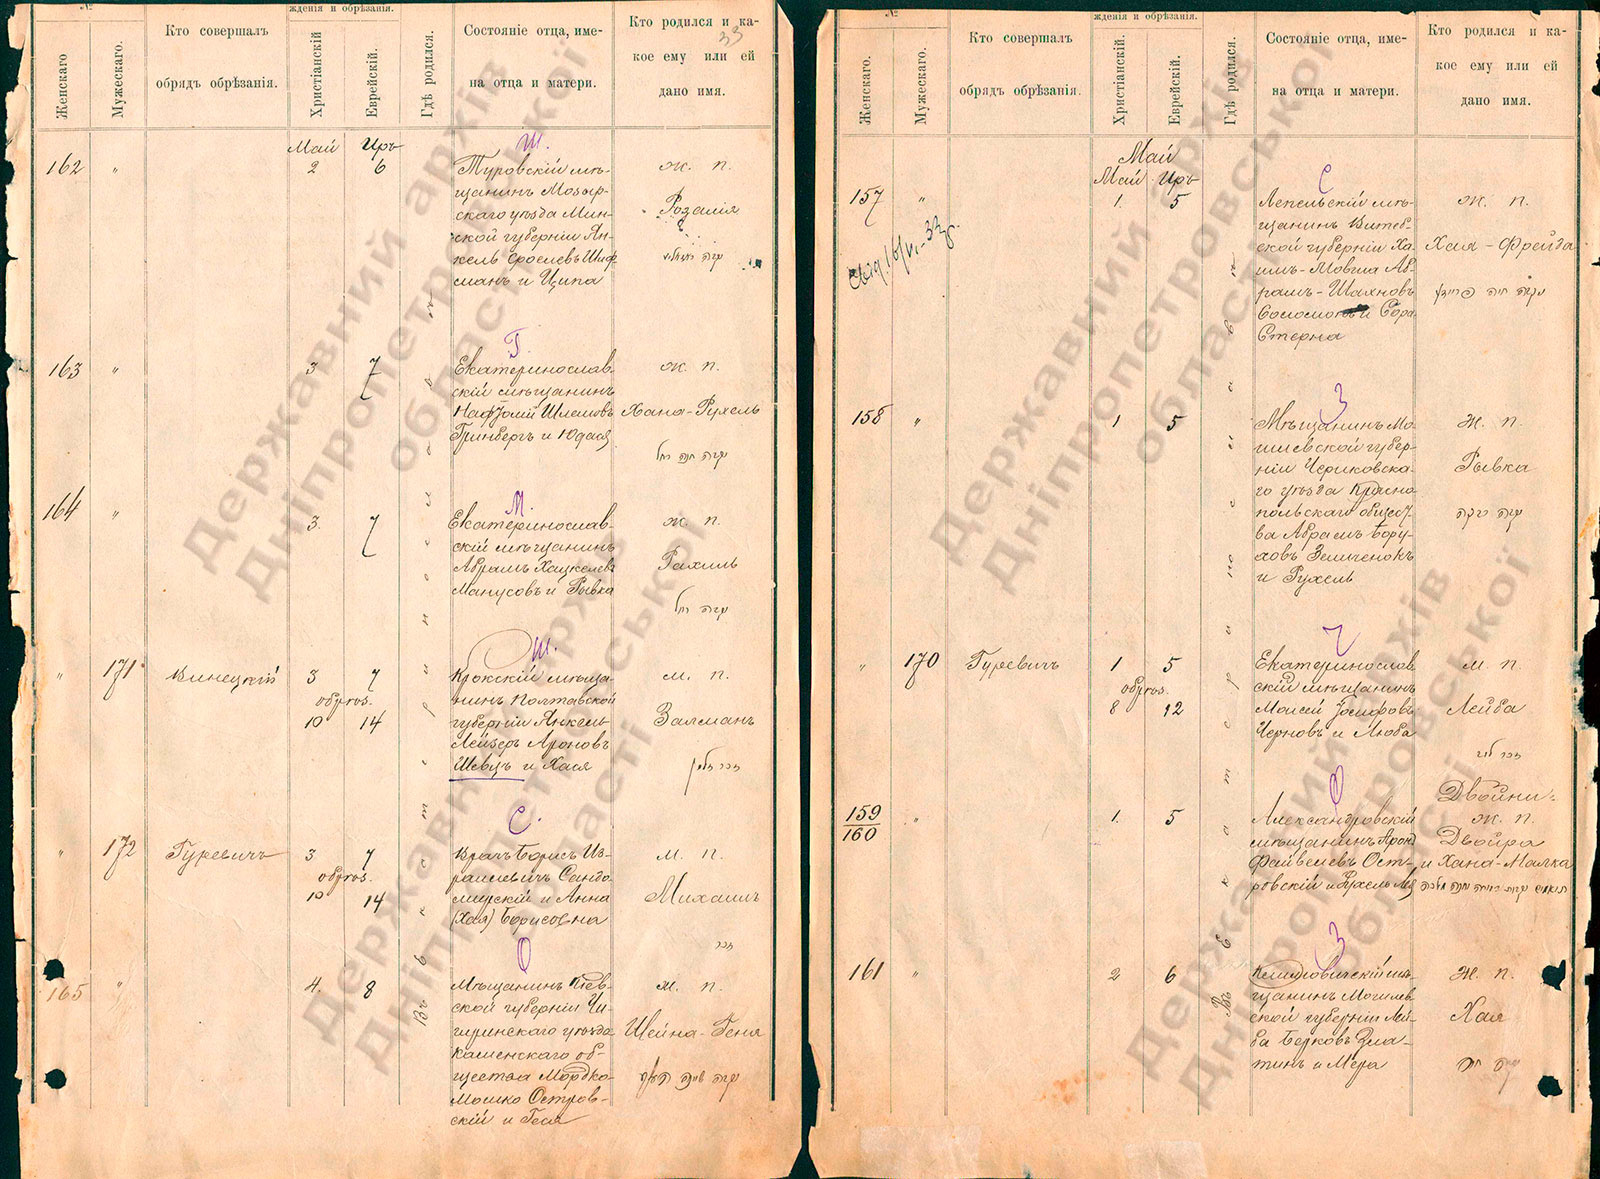 №
ждения и обрѣзанія.
Женскаго
Мужескаго.
Кто совершалъ
обрядъ обрѣзанія.
Христіанскій
Еврейскій.
Гдѣ родился.
Состояніе отца, име-
на отца и матери.
Кто родился и ка-
кое ему или ей
дано имя.
33
Май Иръ
162 " 2 6
Ш.
Туровскій мѣ-
щанинъ Мозыр-
скаго уѣзда Мин-
ской губерніи Ян-
кель Сроелевъ Шиф
манъ и Ципа
ж. п.
Розалія
163 " 3 7
Г.
Екатеринослав
скій мѣщанинъ
Нафтолий Шлемовъ
Гринбергъ и Юдася
ж. п.
Хана-Рухель
נקבה חנה רחל
164 " 3. 7
М.
Екатеринослав-
скій мѣщанинъ
Абрамъ Хацкелевъ
Манусовъ и Рывка
ж. п.
Рахиль
נקבה רחל
" 171 Винецкій 3 7
обрѣз.
10 14
Ш.
Крокскій мѣща-
нинъ Полтавской
губерніи Янкель-
Лейзеръ Ароновъ
Шевцъ и Хася
м. п.
Залманъ
זכר זלמן
" 172 Гуревичъ 3 7
обрѣз.
10 14
С.
Врачъ Борисъ Из-
раилевичъ Сандо-
мирскій и Анна
(Хая) Борисовна
м. п.
Михаилъ
זכר
165 " 4. 8
О
Мѣщанинъ Кіев-
ской губерніи Чи-
гиринскаго уѣзда
Каменскаго об-
щества Мордко-
Мошко Остров-
скій и Геся
ж. п.
Шейна-Геня
Въ Екатеринославѣ
№
ждения и обрѣзанія.
Женскаго.
Мужескаго.
Кто совершалъ
обрядъ обрѣзанія.
Христіанскій.
Еврейскій.
Гдѣ родился.
Состояніе отца, име-
на отца и матери.
Кто родился и ка-
кое ему или ей
дано имя.
Май
Май Иръ
157 " 1. 5
С
Лепельскій мѣ-
щанинъ Витеб-
ской губерніи Ха-
имъ-Мовша Аб-
рамъ-Шахновъ
и Сора
Стерна
ж. п.
Хая-Фрейда
נקבה חיה פריידע
158 " 1 5
З
Мѣщанинъ Мо-
гилевской губер-
ніи Чериковска-
го уѣзда Красно-
польскаго общест-
ва Абрамъ Бору-
ховъ Зеличенокъ
и Рухель
ж. п.
Рывка
נקבה רבקה
" 170 Гуревичъ 1 5
обрѣз.
8 12
Ч
Екатеринослав
скій мѣщанинъ
Моисей Іосифовъ
Черновъ и Люба
м. п.
Лейба
זכר ליב
159
160 " 1. 5
О
Александровскій
мѣщанинъ Арон
Файвелевъ Ост-
ровскій и Рухель Лея
Двойни:
ж. п.
Двойра
и Хана-Малка
161 " 2 6
З
Климовичскій мѣ-
щанинъ Могилев-
ской губерніи Лей-
ба Берковъ Зла-
тинъ и Мера
ж. п.
Хая
נקבה חיה
Въ Екатеринославѣ
Державний архів
Дніпропетровської
області